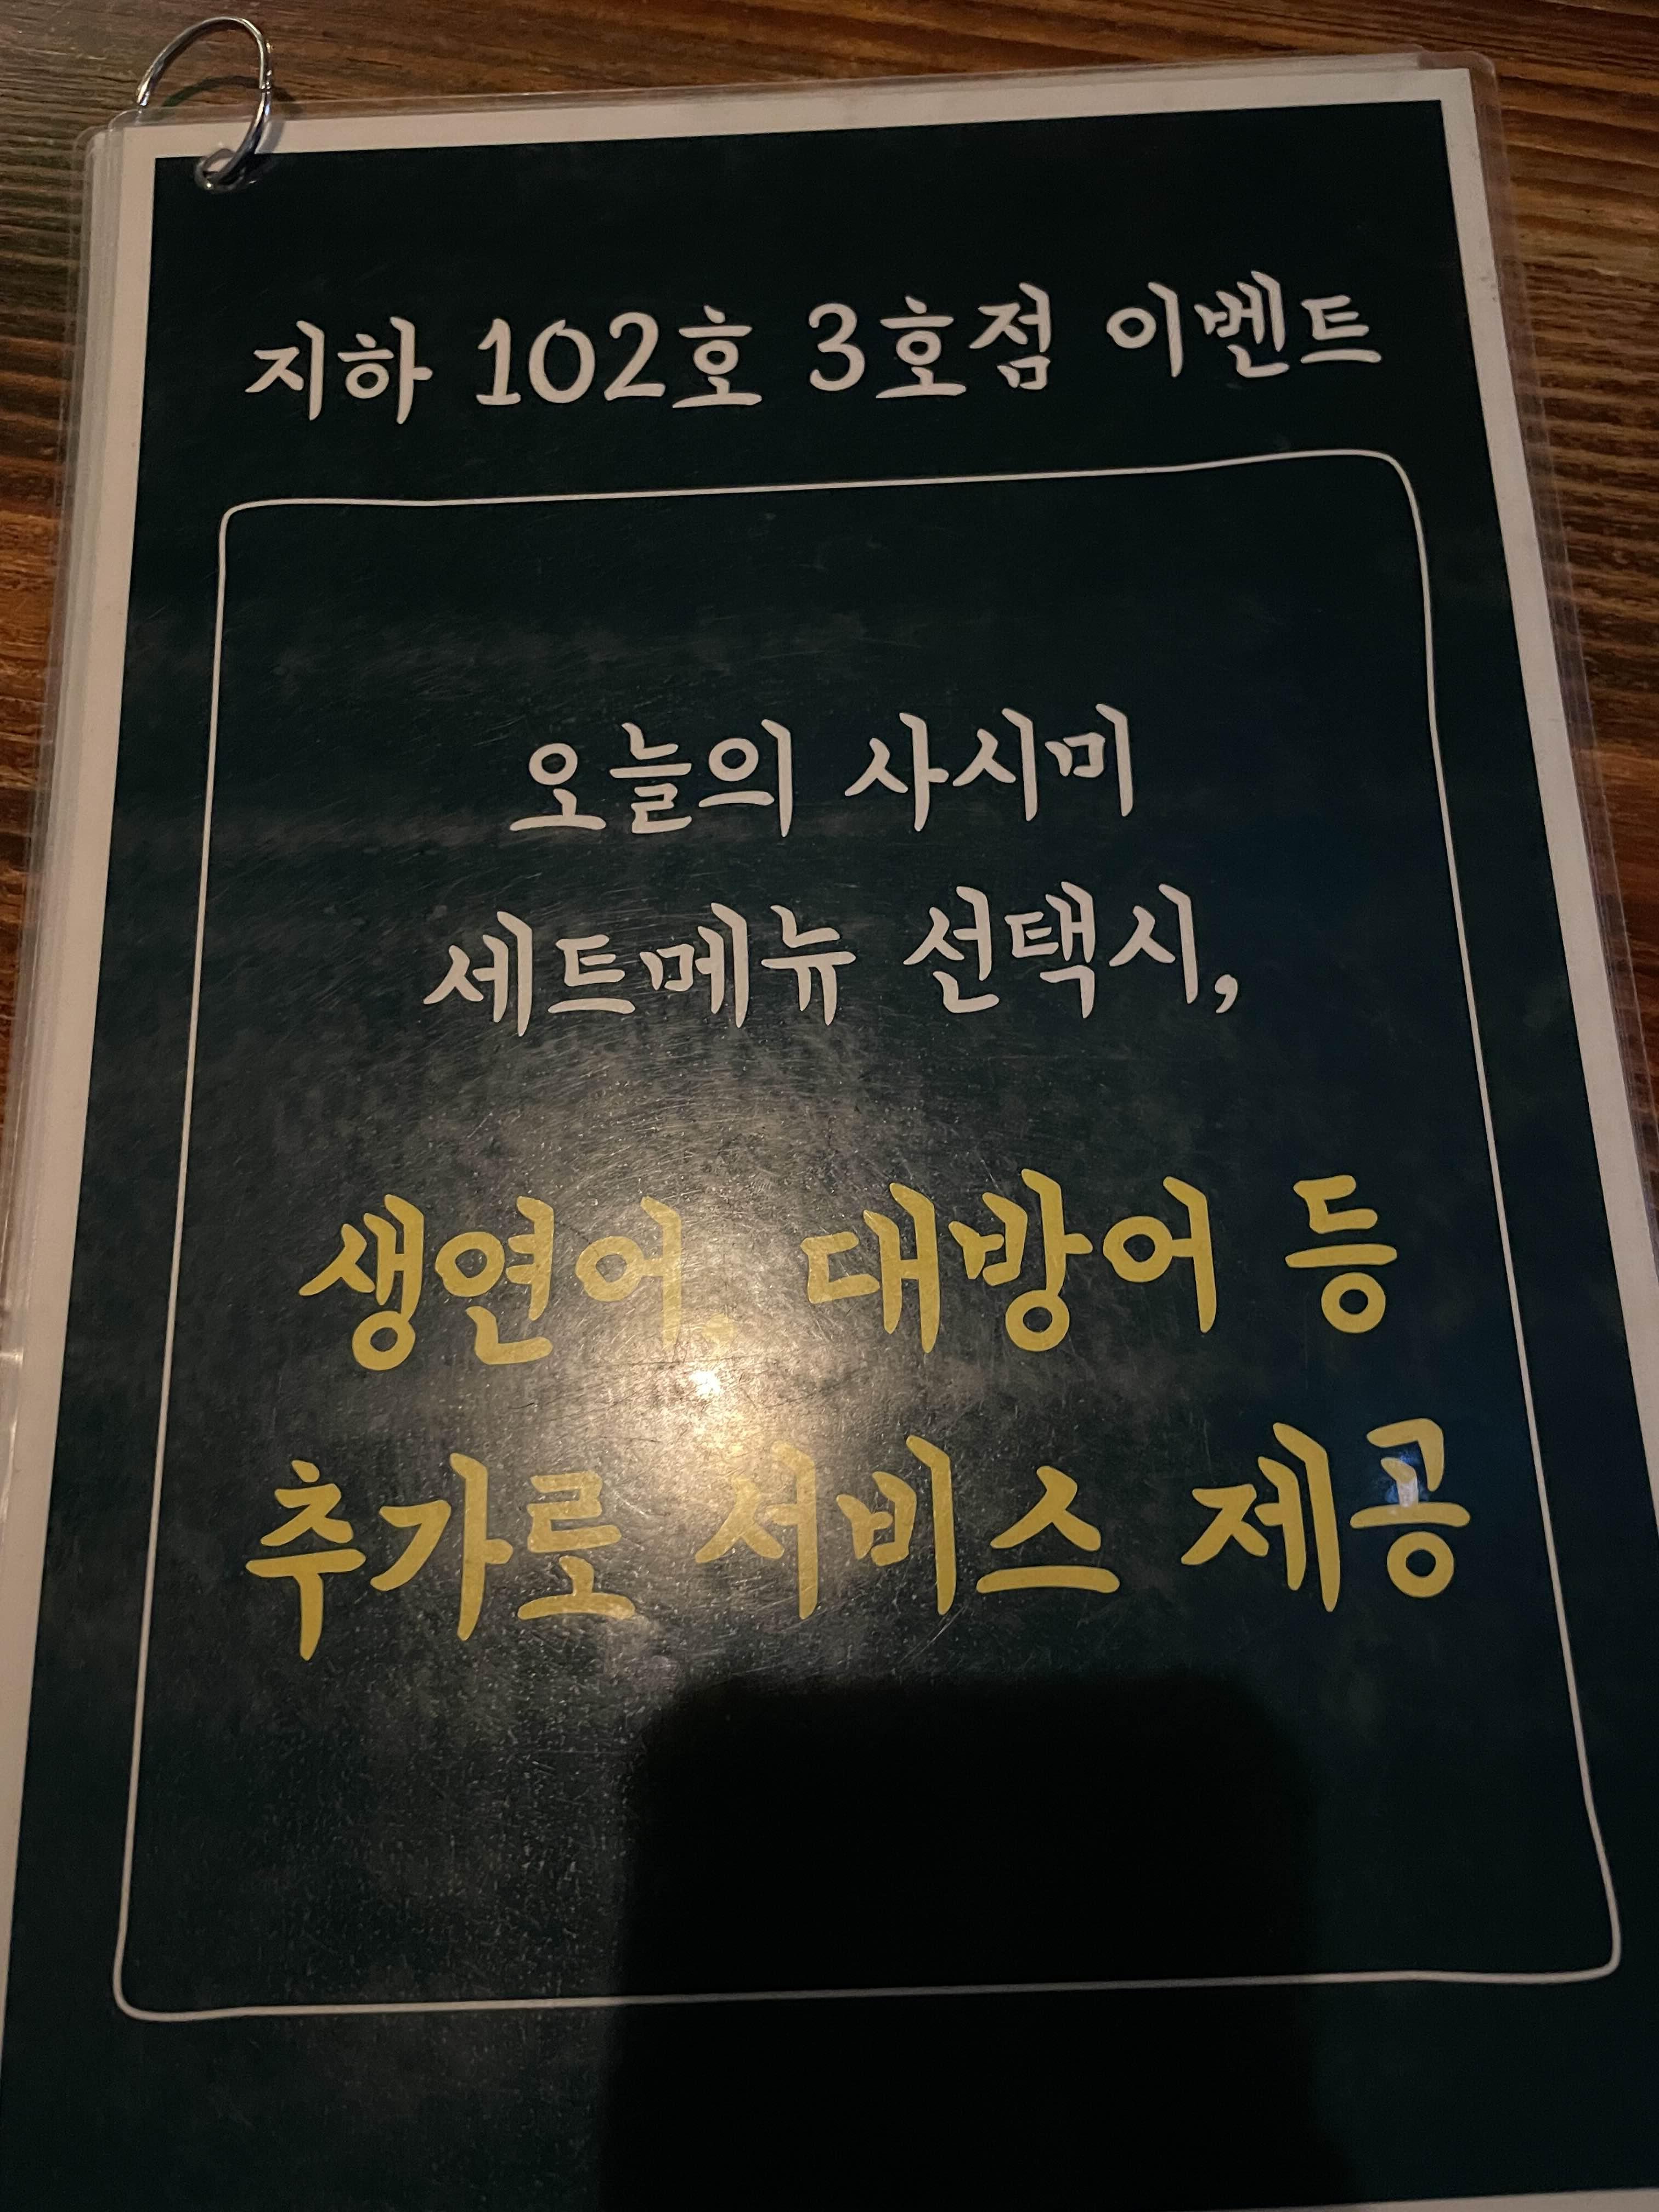 지하 102호 3호점 이벤트
오늘의 사시미
세트메뉴 선택시,
생연어, 대방어 등
추가로 서비스 제공